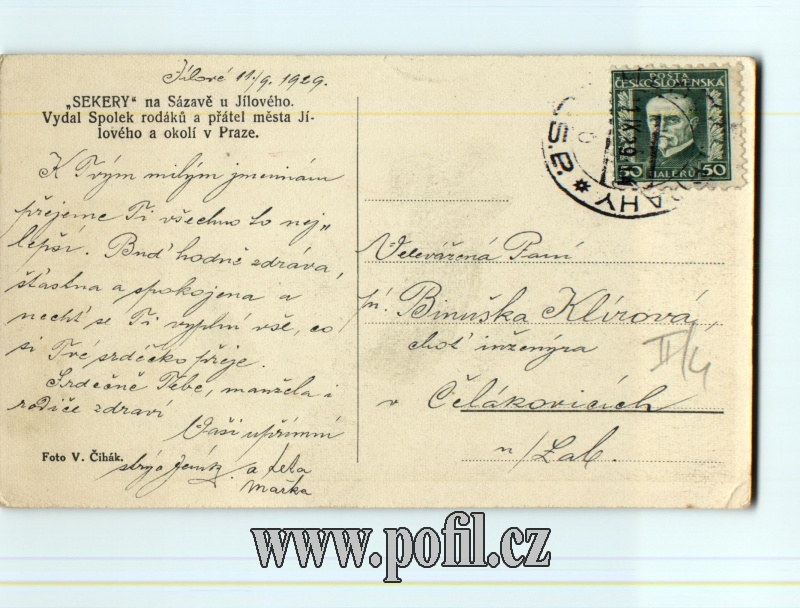 Jílové 11/9. 1929.
„SEKERY“ na Sázavě u Jílového.
Vydal Spolek rodáků a přátel města Jí-
lového a okolí v Praze.
K Tvým milým jmeninám
přejeme Ti všechno to nej„
lepší. Buď hodně zdráva,
šťastna a spokojena a
nechť se Ti vyplní vše, co
si Tvé srdéčko přeje.
Srdečně Tebe, manžela i
rodiče zdraví
Vaši upřímní
strýc a teta
Mařka
Foto V. Čihák.
POSTA
ČESKOSLOVENSKA
50 HALÉŘŮ 50
Č.S.P.
Velevážená Paní
pí. Binuška Klírová,
choť inženýra
v Čelákovicích
n/Lab.
II/4
www.pofil.cz